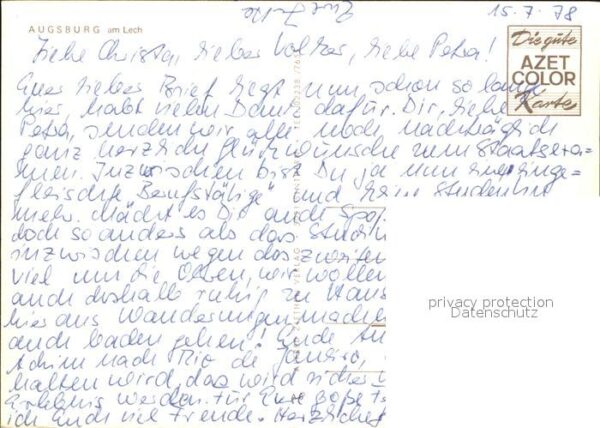 Eure Jutta
15.7.78
AUGSBURG am Lech
Die gute
AZET
COLOR
Karte
Liebe Christa, lieber Volker, liebe Petra!
Euer lieber Brief liegt nun schon so lange
hier, habt vielen Dank dafür. Dir, liebe
Petra, senden wir alle noch nachträglich
ganz herzliche Glückwünsche zum Staatsexa-
men. Inzwischen bist Du ja nun eine einge-
fleischte "Berufstätige" und keine Studentin
mehr. Macht es Dir auch Spaß
doch so anders als das Studi
inzwischen wegen das zweiten
viel um die Ohren, wir wollen
auch deshalb ruhig zu Haus
hier aus Wanderungen machen
auch baden gehen! Ende Au
Achim nach Rio de Janeiro,
halten wird, das wird sicher
Erlebnis werden. Für Eure große
ich Euch viel Freude. Herzlichst
privacy protection
Datenschutz